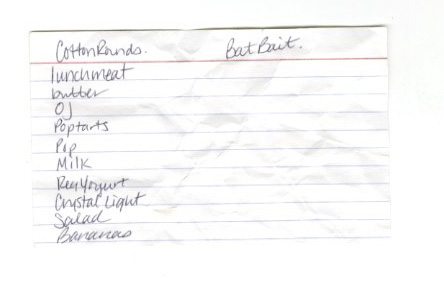 Cotton Rounds. Bat Bait.
lunchmeat
butter
OJ
Poptarts
Pop
Milk
Reg Yogurt
Crystal Light
Salad
Bananas